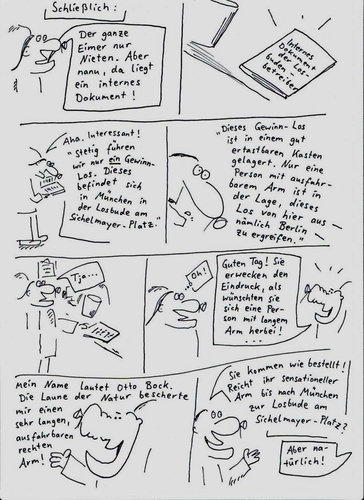 Schließlich:
Der ganze
Eimer nur
Nieten. Aber
nanu, da liegt
ein internes
Dokument!
Internes
Dokument
der Los-
buden-
betreiber
Aha. Interessant!
"Stetig führen
wir nur ein Gewinn-
Los. Dieses
befindet sich
in München in
der Losbude am
Sichelmayer-Platz."
"Dieses Gewinn-Los
ist in einem gut
ertastbaren Kasten
gelagert. Nur eine
Person mit ausfahr-
barem Arm ist in
der Lage, dieses
Los von hier aus -
nämlich Berlin -
zu ergreifen."
Tja...
Oh!
Guten Tag! Sie
erwecken den
Eindruck, als
wünschten sie
sich eine Per-
son mit langem
Arm herbei!
...
Mein Name lautet Otto Bock.
Die Laune der Natur bescherte
mir einen
sehr langen,
ausfahrbaren
rechten
Arm!
Sie kommen wie bestellt!
Reicht ihr sensationeller
Arm bis nach München
zur Losbude am
Sichelmayer-Platz?
Aber na-
türlich!